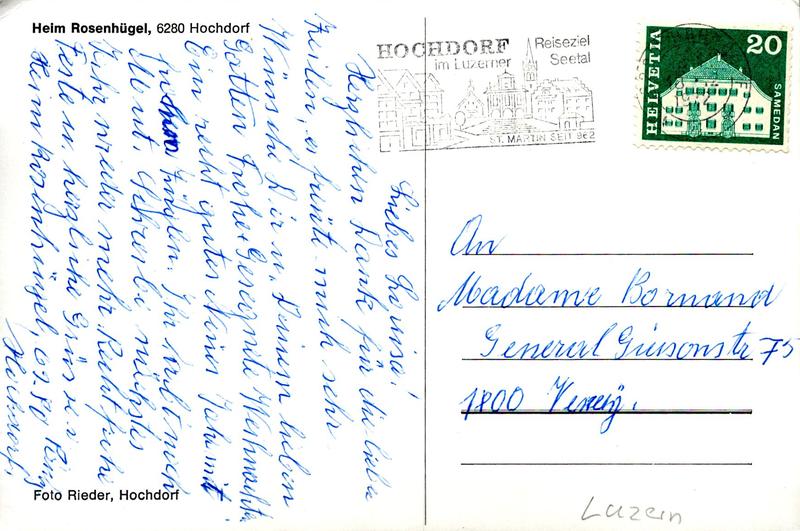 Heim Rosenhügel, 6280 Hochdorf
HOCHDORF
im Luzerner
Reiseziel
Seetal
ST. MARTIN SEIT 962
HELVETIA
20
SAMEDAN
Liebes Luisa!
Herzlichen Dank für die liebe
Zeilen, es freute mich sehr.
Wünsche Dir u. Deinem lieben
Gatten Frohe + Gesegnete Weihnachten
Ein recht gutes Neues Jahr mit
Ich habe noch
Mut. Schreibe nächstes
wieder mehr. Recht frohe
Feste u. herzliche Grüsse
Heim Rosenhügel, 6280
Hochdorf.
An
Madame Bornand
General Guisonstr 75
1800 Vevey.
Foto Rieder, Hochdorf
Luzern